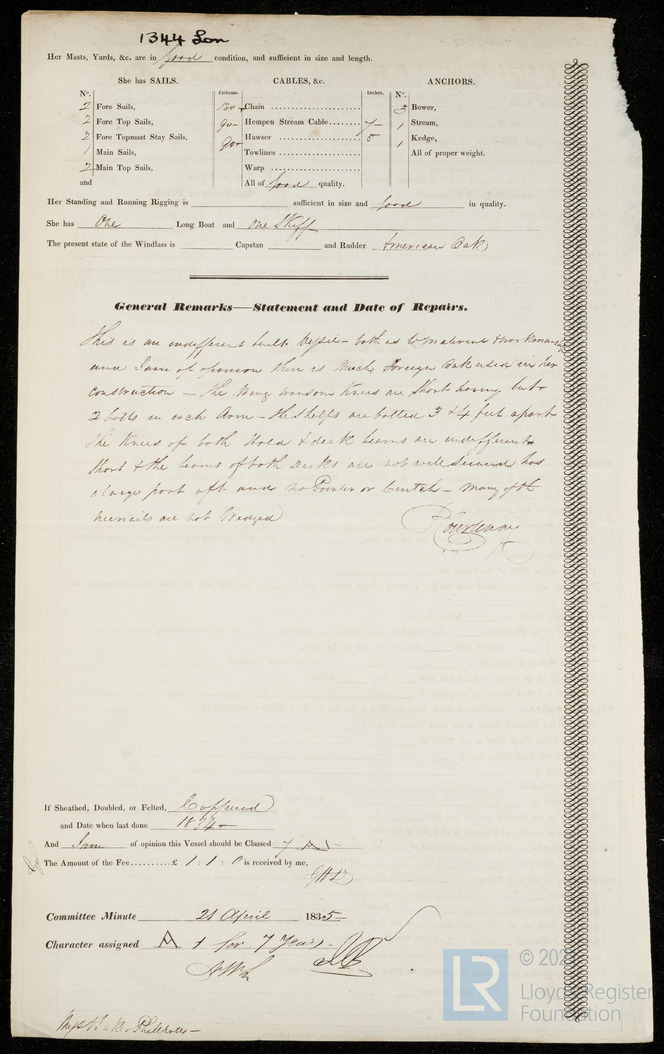 1344 Lon
Her Masts, Yards, &c. are in good condition, and sufficient in size and length.
She has SAILS. CABLES, &c. ANCHORS.
Nº. Fathoms. Inches. Nº.
2 Fore Sails, Chain 3 Bower,
2 Fore Top Sails, 90 Hempen Stream Cable 7 1 Stream,
2 Fore Topmast Stay Sails, 90 Hawser 5 1 Kedge,
1 Main Sails, Towlines All of proper weight.
2 Main Top Sails, Warp
and All of good quality.
Her Standing and Running Rigging is sufficient in size and good in quality.
She has One Long Boat and One Skiff
The present state of the Windlass is Capstan and Rudder American Oak
General Remarks—Statement and Date of Repairs.
This is an indifferent built Vessel - both as to Material & workmanship
and I am of opinion there is Much Foreign Oak used in her
construction - The Wing transom Knees are Short having but
2 bolts in each Arm - The Shelfs are bolted 3 & 4 feet apart
The Knees of both Hold & deck beams are indifferent
Short & the beams of both Decks are not well Secured has
a large port aft and no Pointer or Crutch - Many of the
are not Wedged
If Sheathed, Doubled, or Felted, Coppered
and Date when last done 1834
And I am of opinion this Vessel should be Classed 7 A 1
The Amount of the Fee..........£ 1 : 1 : 0 is received by me,
Committee Minute 21 April 1835
Character assigned A 1 for 7 Years
© 202
Lloyd's Register
Foundation
LR